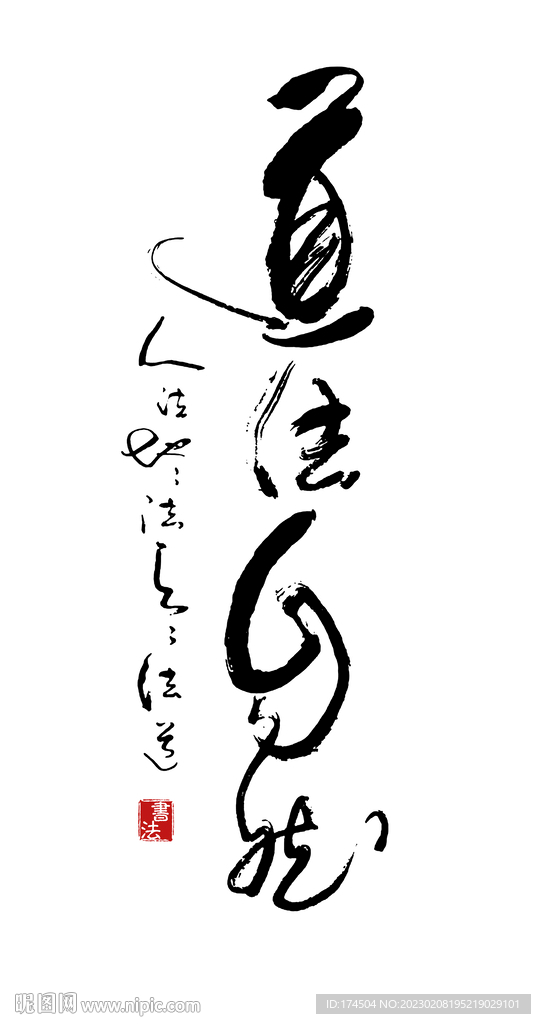 道法自然
人法地〻法天〻法道
書法
昵图网 www.nipic.com
ID:174504 NO:20230208195219029101